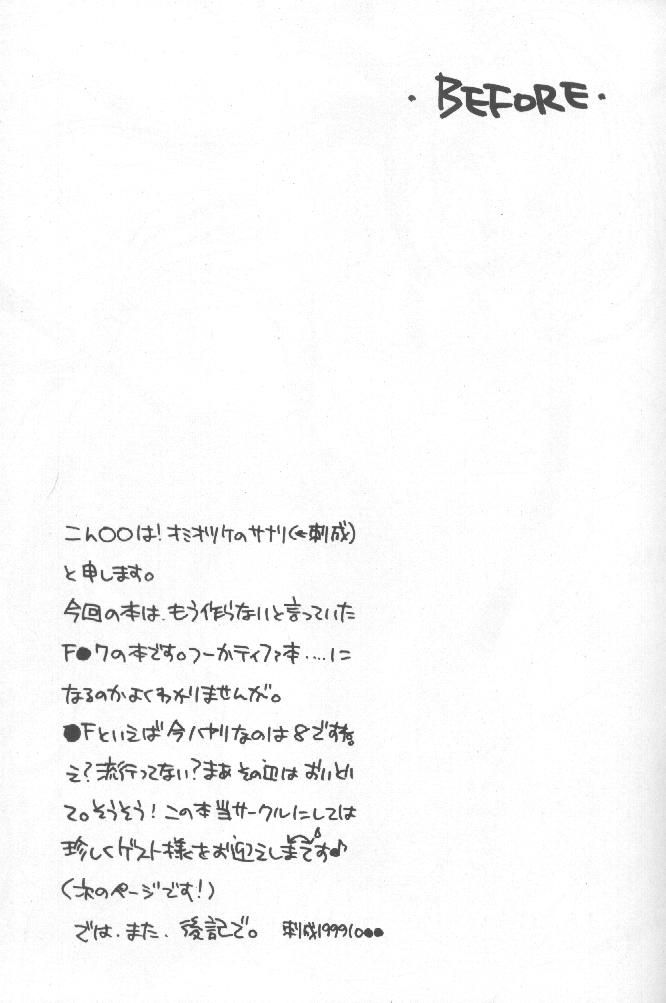 ・BEFORE・
こん〇〇は！オミオツケのサナリ(←刺成)
と申します。
今回の本は、もう作らないと言っていた
F●7の本です。つーかティファ本‥‥に
なるのかよくわかりませんが。
●Fといえば今ハヤリなのは8ですね。
え？流行ってない？まぁその辺はおいとい
て。そうそう！この本当サークルにしては
珍しくゲスト様をお迎えしてます♪
(次のページです！)
では、また、後記で。 刺成199910●●